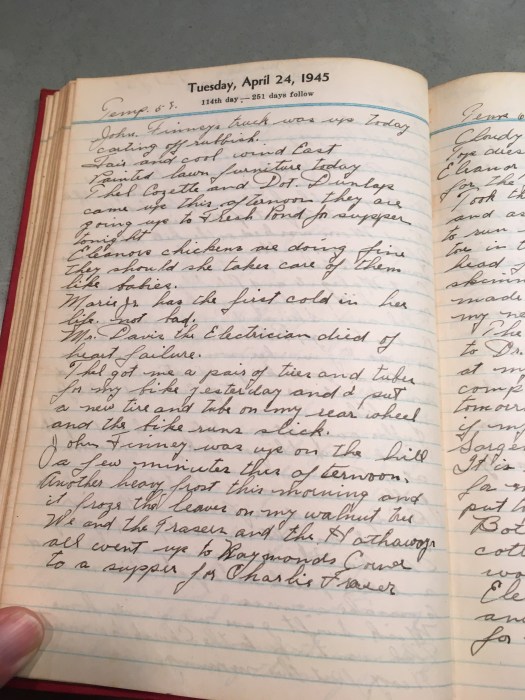 Tuesday, April 24, 1945
114th day — 251 days follow
Temp. 53.
John Finneys truck was up today
carting off rubbish.
Fair and cool wind East
Painted lawn furniture today
Thel Cozette and Dot. Dunlap
came up this afternoon they are
going up to Fresh Pond for supper
tonight
Eleanors chickens are doing fine
they should she takes care of them
like babies.
Marie Jr. has the first cold in her
life. not bad.
Mr. Davis the Electrician died of
heart failure.
Thel got me a pair of ties and tubes
for my bike yesterday and I put
a new tire and tube on my rear wheel
and the bike runs slick.
John Finney was up on the hill
a few minutes this afternoon.
Another heavy frost this morning and
it froze the leaves on my walnut tree
We and the Frasers and the Hathaways
all went up to Raymonds Corner
to a supper for Charlie Fraser
Cloudy
Eleanor
for the
Took th
and as
to run
head
made
my ne
to Dr
at m
comp
tomorr
if my
It is
for
put h
Bot
cott
wa
Ele
an
for